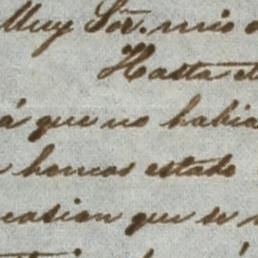 Muy Sõr. mio
Hasta el
á que no habia
hemos estado
casion que se